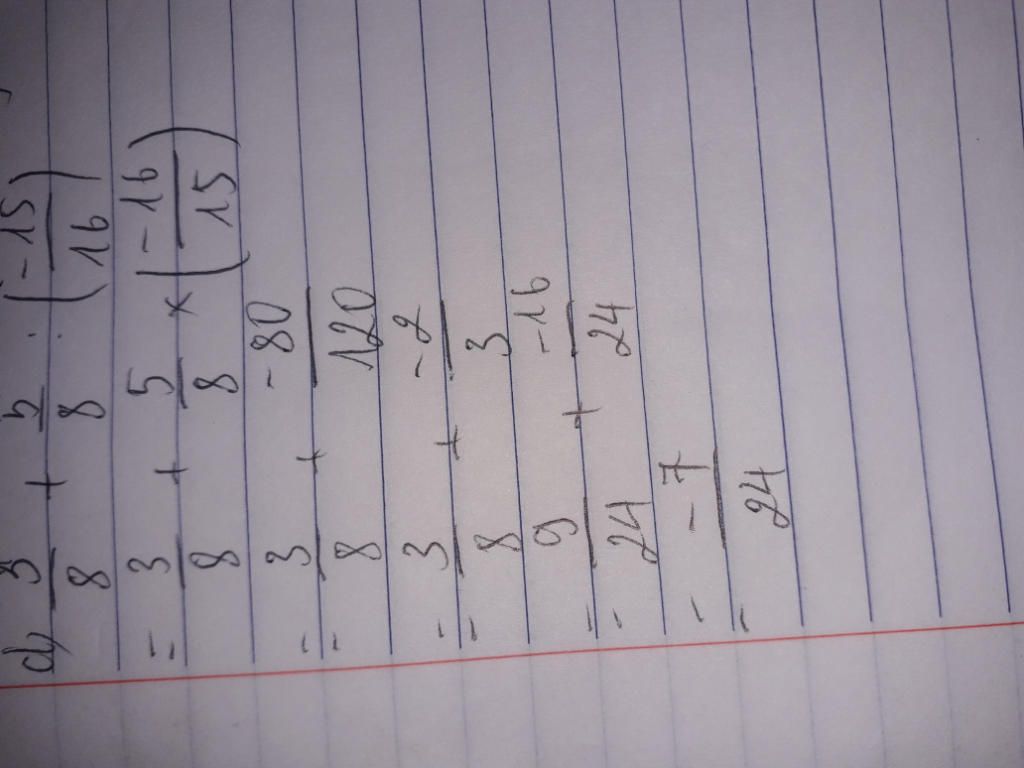 d) 3/8 + 5/8 : (-15/16)
= 3/8 + 5/8 × (-16/15)
= 3/8 + -80/120
= 3/8 + -2/3
= 9/24 + -16/24
= -7/24